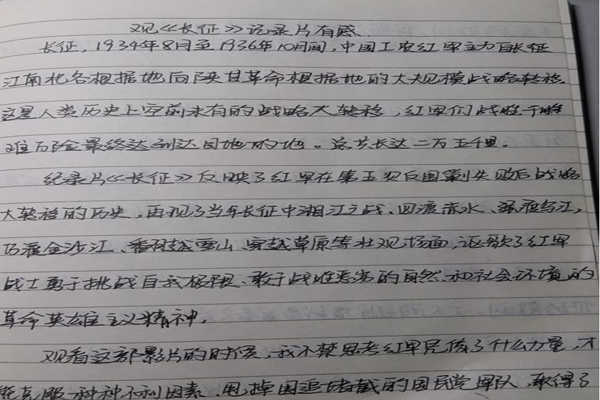 观《长征》记录片有感
长征，1934年8月至1936年10月间，中国工农红军主力自长征
江南北各根据地向陕甘革命根据地的大规模战略转移。
这是人类历史上空前未有的战略大转移，红军们战胜千难
难万险最终达到达目地的地。总共长达二万五千里。
纪录片《长征》反映了红军在第五次反围剿失败后战略
大转移的历史，再现了当年长征中湘江之战、四渡赤水、强渡乌江，
巧渡金沙江、翻越雪山、穿越草原等壮观场面，讴歌了红军
战士勇于挑战自我极限、敢于战胜恶劣的自然和社会环境的
革命英雄主义精神。
观看这部影片的时候，我不禁思考红军凭借了什么力量，才
能克服种种不利因素，甩掉围追堵截的国民党军队，取得了